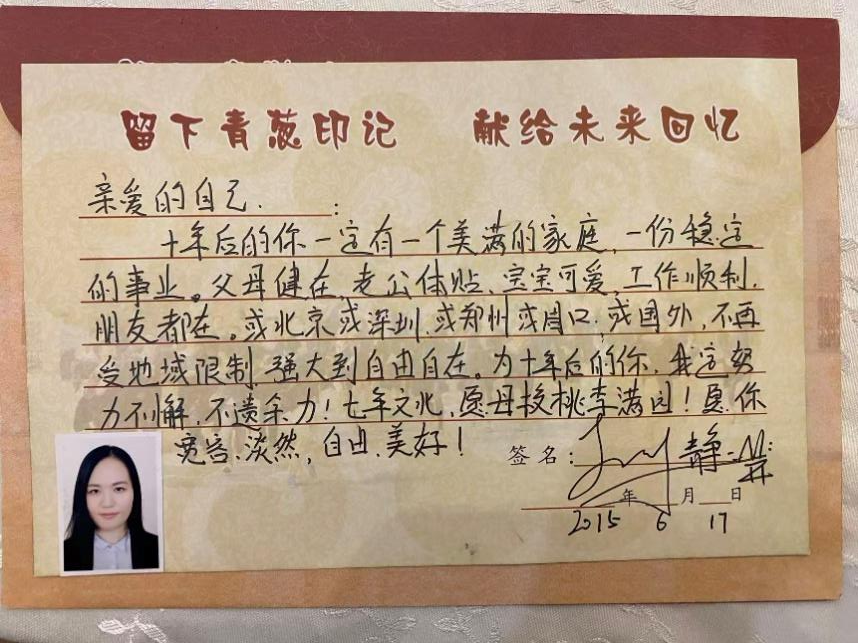 留下青葱印记 献给未来回忆
亲爱的自己.:
十年后的你一定有一个美满的家庭,一份稳定
的事业。父母健在,老公体贴、宝宝可爱,工作顺利,
朋友都在。或北京或深圳.或郑州或周口.或国外,不再
受地域限制.强大到自由自在。为十年后的你,我定努
力不懈,不遗余力!七年文化,愿母校桃李满园!愿你
宽容、淡然,自由.美好!
签名: 静
年 月 日
2015 6 17